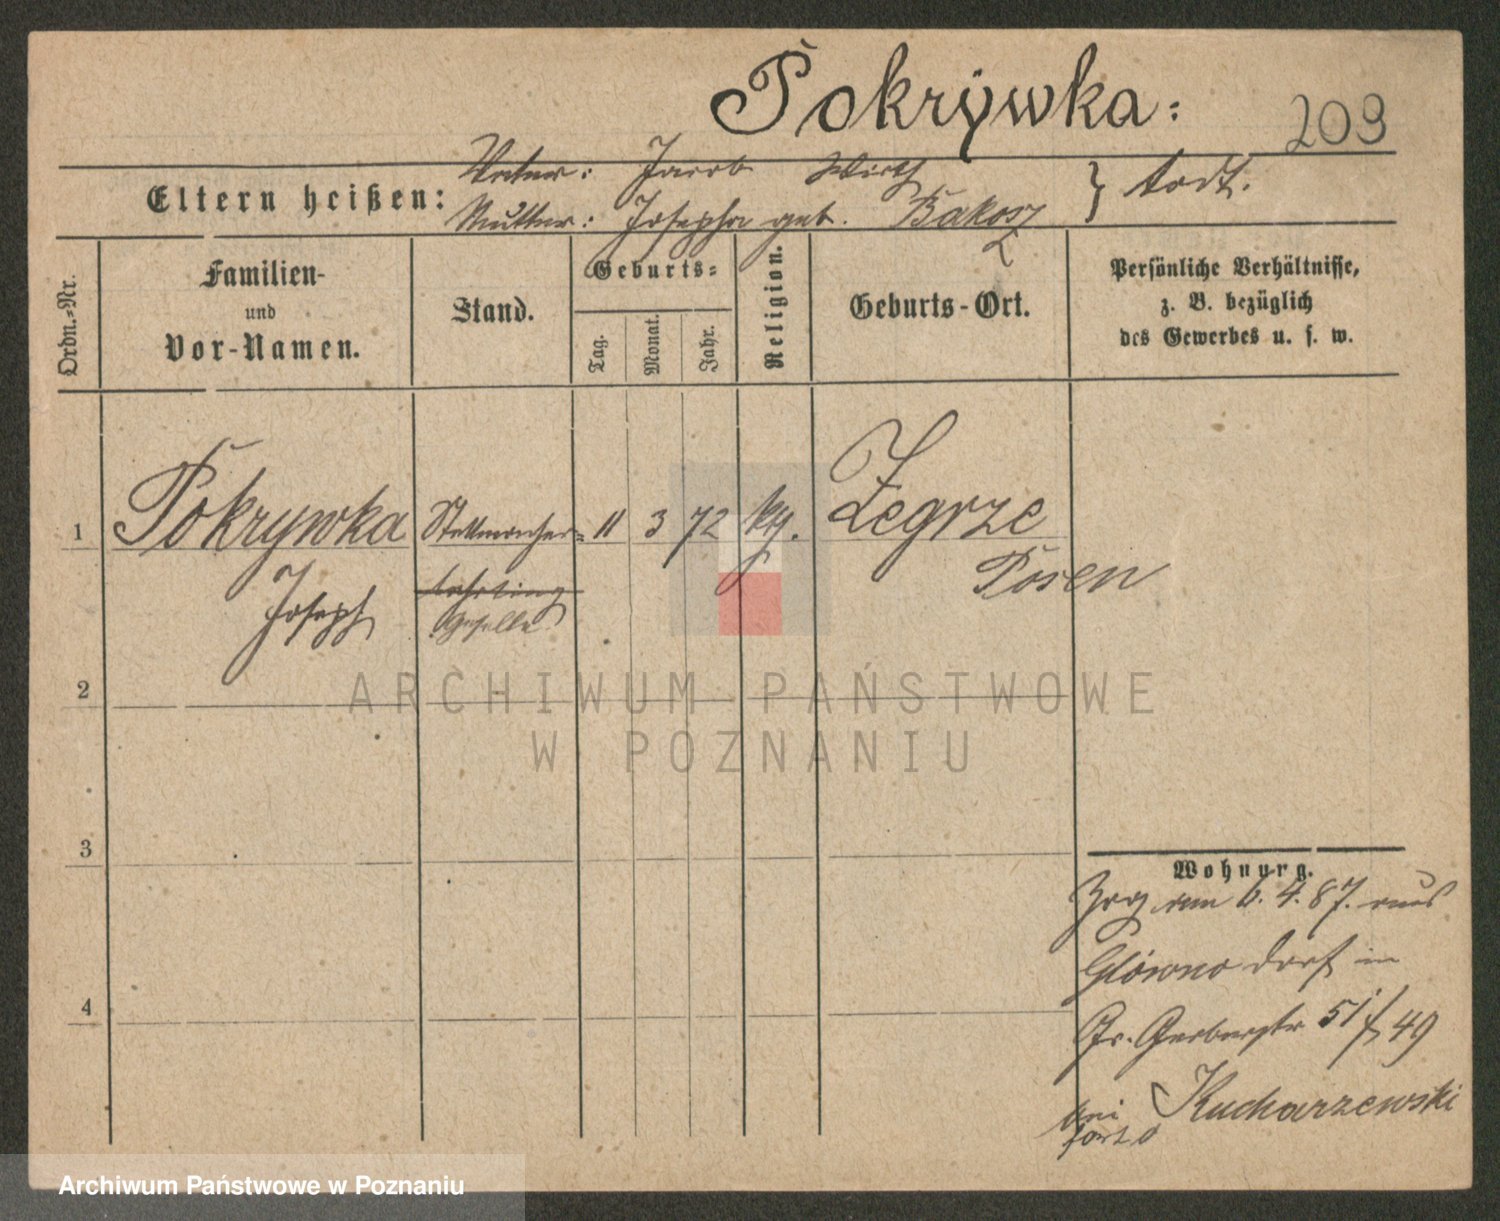 Pokrywka:
209
Eltern heißen:
Vater: Jacob Wirth
Mutter: Josepha geb. Bakosz
} todt.
Ordn.-Nr.
Familien-
und
Vor-Namen.
Stand.
Geburts-
Tag.
Monat.
Jahr.
Religion.
Geburts-Ort.
Persönliche Verhältnisse,
z. B. bezüglich
des Gewerbes u. s. w.
1 Pokrywka Stellmacher- 11 3 72 kth. Zegrze
Joseph
Lehrling
Geselle
Posen
2
3
4
Wohnung.
Zog am 6. 4. 87. aus
Główno dorf in
Gr. Gerberstr 51/49
bei Kucharzewski
ARCHIWUM PAŃSTWOWE
W POZNANIU
Archiwum Państwowe w Poznaniu